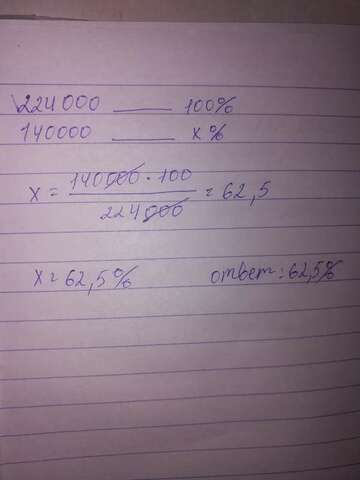 224000 ____ 100%
140000 ____ x%
x = 140000 · 100 / 224000 = 62,5
x = 62,5%
ответ: 62,5%